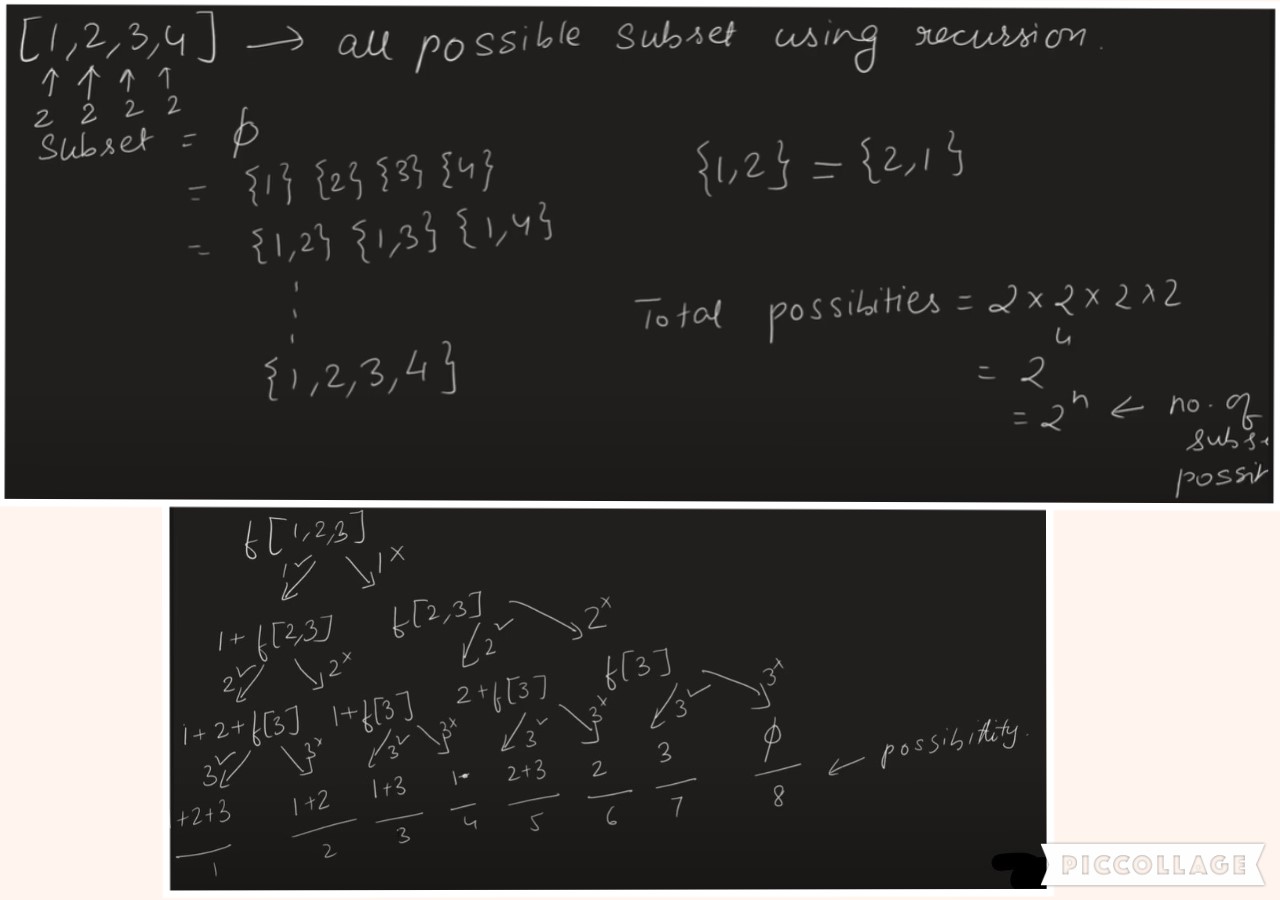 [1,2,3,4] → all possible subset using recursion.
↑ ↑ ↑ ↑
2 2 2 2
Subset = ϕ
= {1} {2} {3} {4}
{1,2} = {2,1}
= {1,2} {1,3} {1,4}
Total possibities = 2 × 2 × 2 × 2
{1,2,3,4}
= 2⁴
= 2ⁿ ← no. of
subs
possi
f[1,2,3]
1✓ 1×
1+f[2,3] f[2,3] 2×
2✓ 2× 2✓
1+2+f[3] 1+f[3] 2+f[3] f[3] 3×
3✓ 3× 3✓ 3× 3✓ 3× 3✓
+2+3 1+2 1+3 1 2+3 2 3 ϕ ← possibitlity.
1 2 3 4 5 6 7 8
PICCOLLAGE